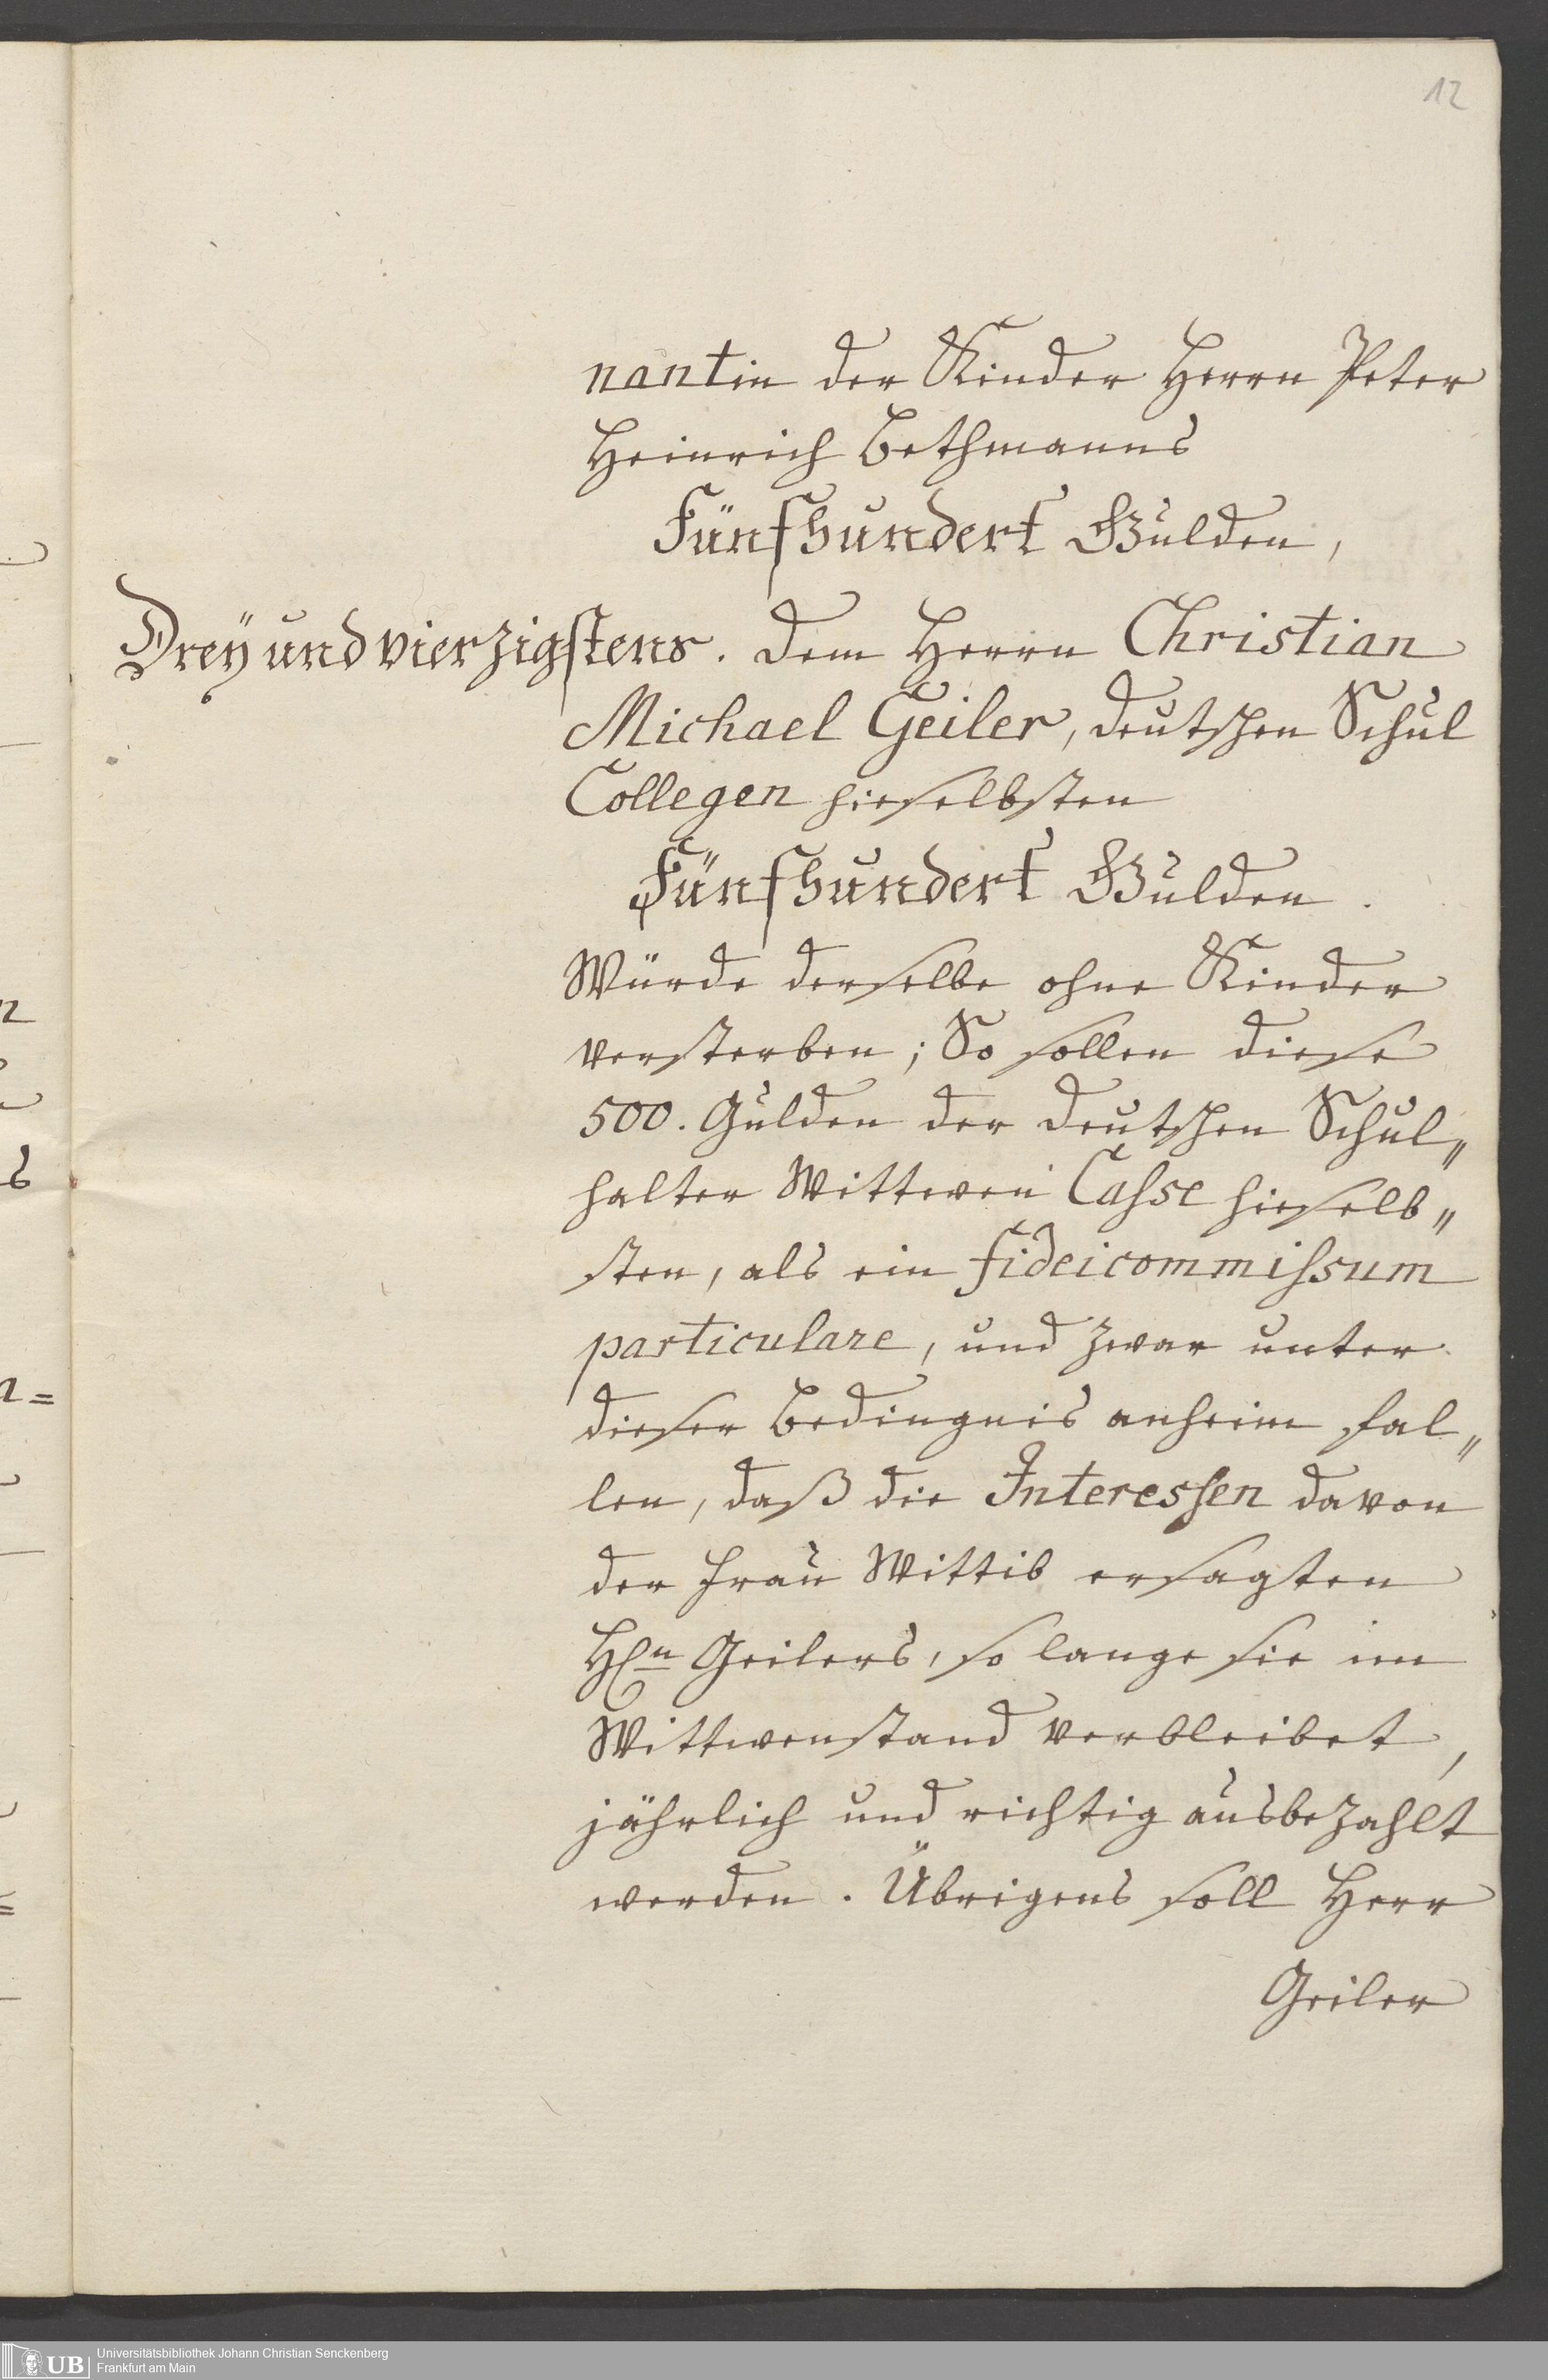 12
nantin der Kinder Herrn Peter
Heinrich Bethmanns
Fünfhundert Gulden,
Dreÿundvierzigstens. dem Herrn Christian
Michael Geiler, deutschen Schul
Collegen hieselbsten
Fünfhundert Gulden.
Würde derselbe ohne Kinder
versterben; So sollen diese
500. Gulden der deutschen Schul„
halter Wittwen Casse hieselb„
sten, als ein fideicommissum
particulare, und zwar unter
dieser Bedingnis anheim fal„
len, daß die Interessen davon
der Frau Wittib ersagten
Hℓn Geilers, so lange sie im
Wittwenstand verbleibet,
jährlich und richtig ausbezahlt
werden. Übrigens soll Herr
Geiler
UB
Universitätsbibliothek Johann Christian Senckenberg
Frankfurt am Main